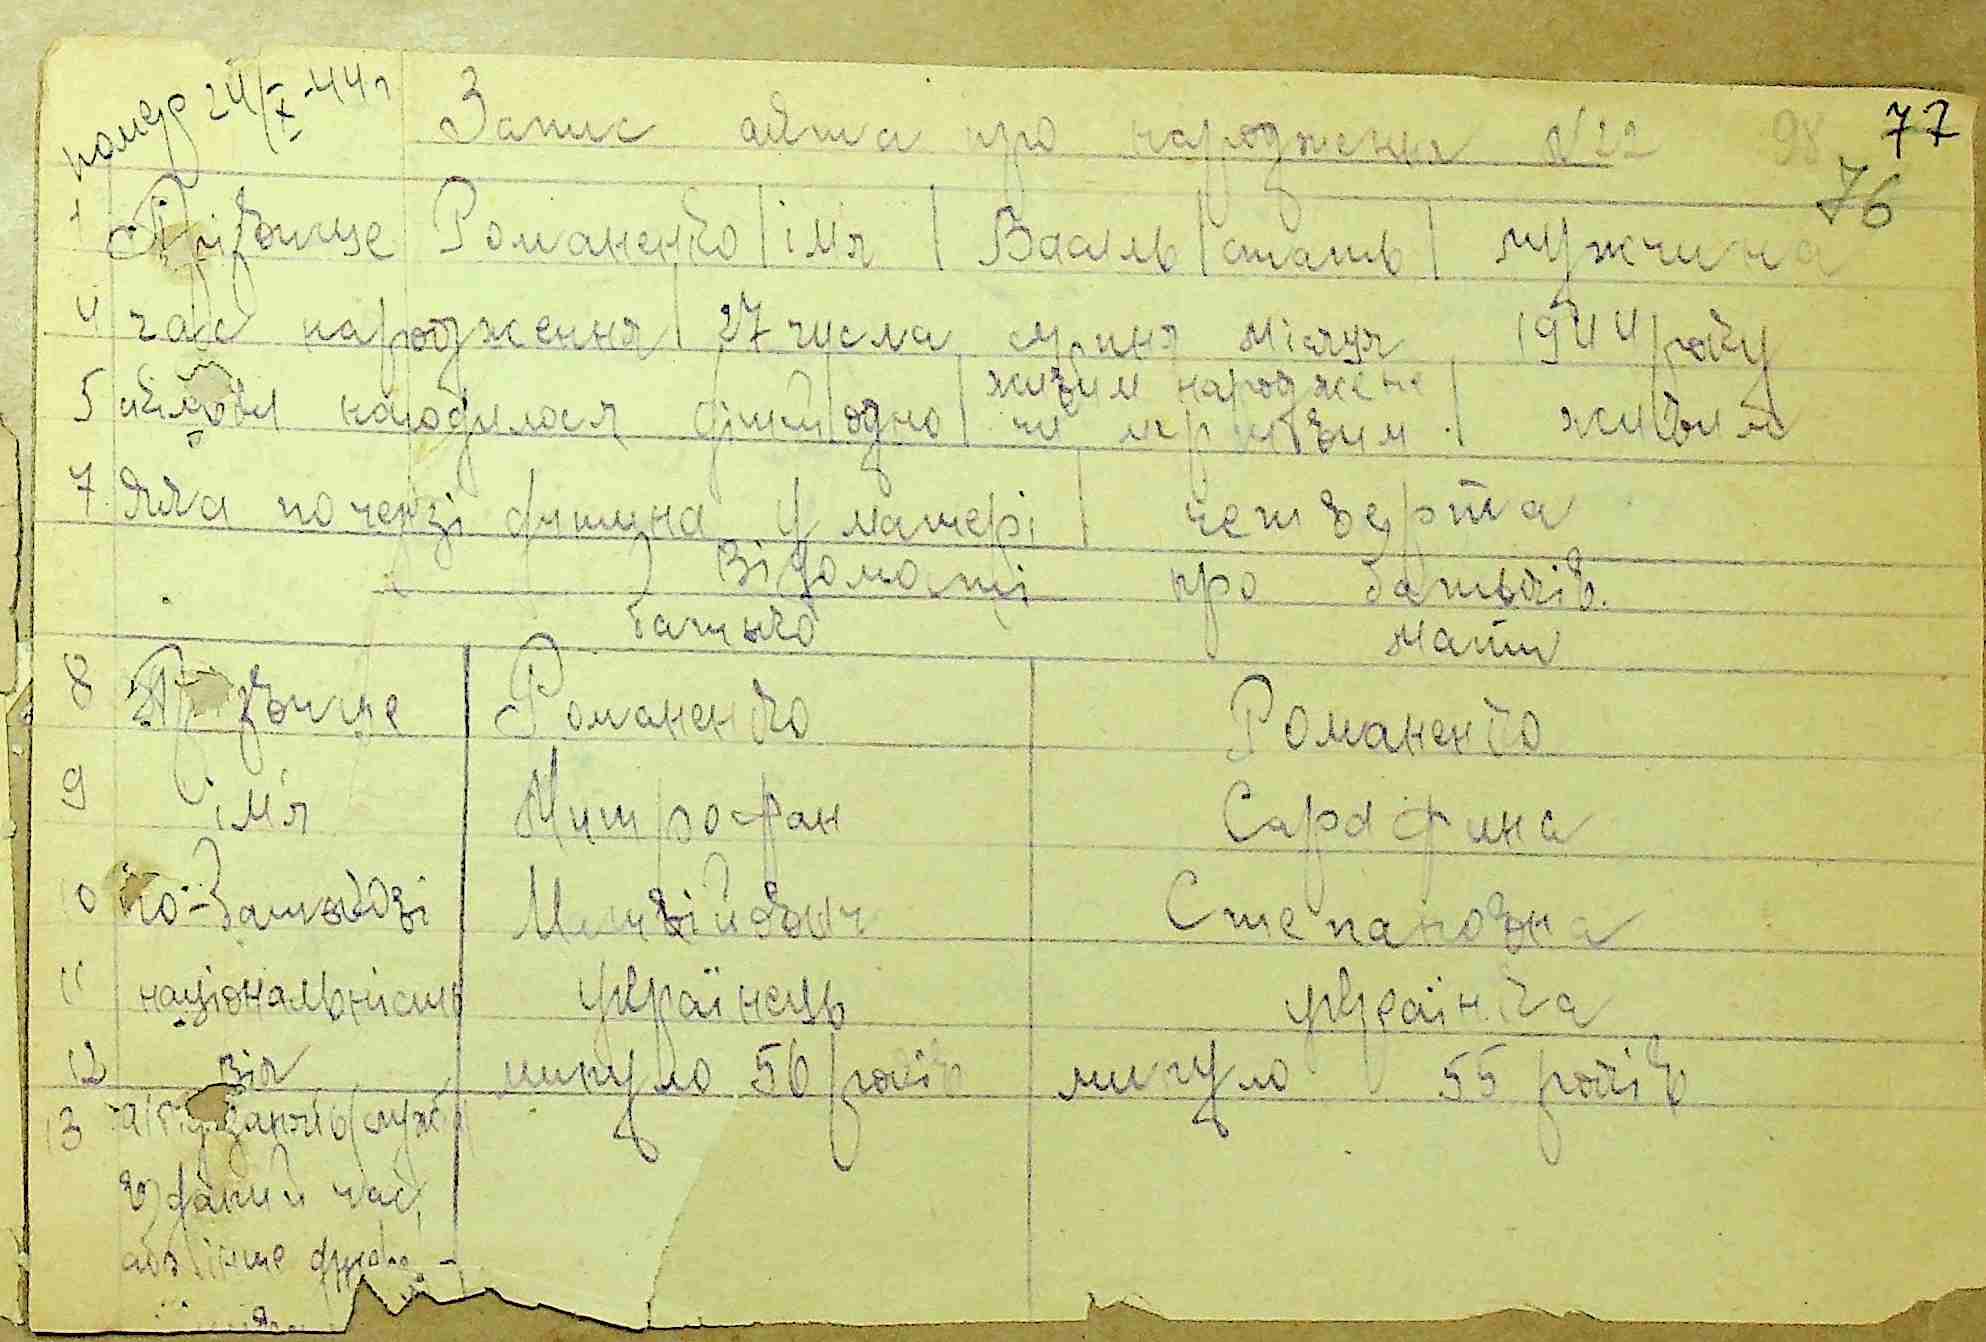 помер 24/X-44 г
Запис акта про народження №22 98 77
76
1 Прізвище Романенко | імя | Василь | стать | мужчина
4 час народження | 27 числа серпня місяця 1944 року
живим народжене
5 скільки народилося дітей | одно | чи мертвим | живим
7 Яка по черзі дитина у матері | четверта
Відомості про батьків.
батько мати
8 Прізвище Романенко Романенко
9 ім'я Митрофан Сарафина
10 по-батькові Степановна
11 національність українець українка
12 вік минуло 56 років минуло 55 років
13 занять (служби
в даний час,
або інше джере-